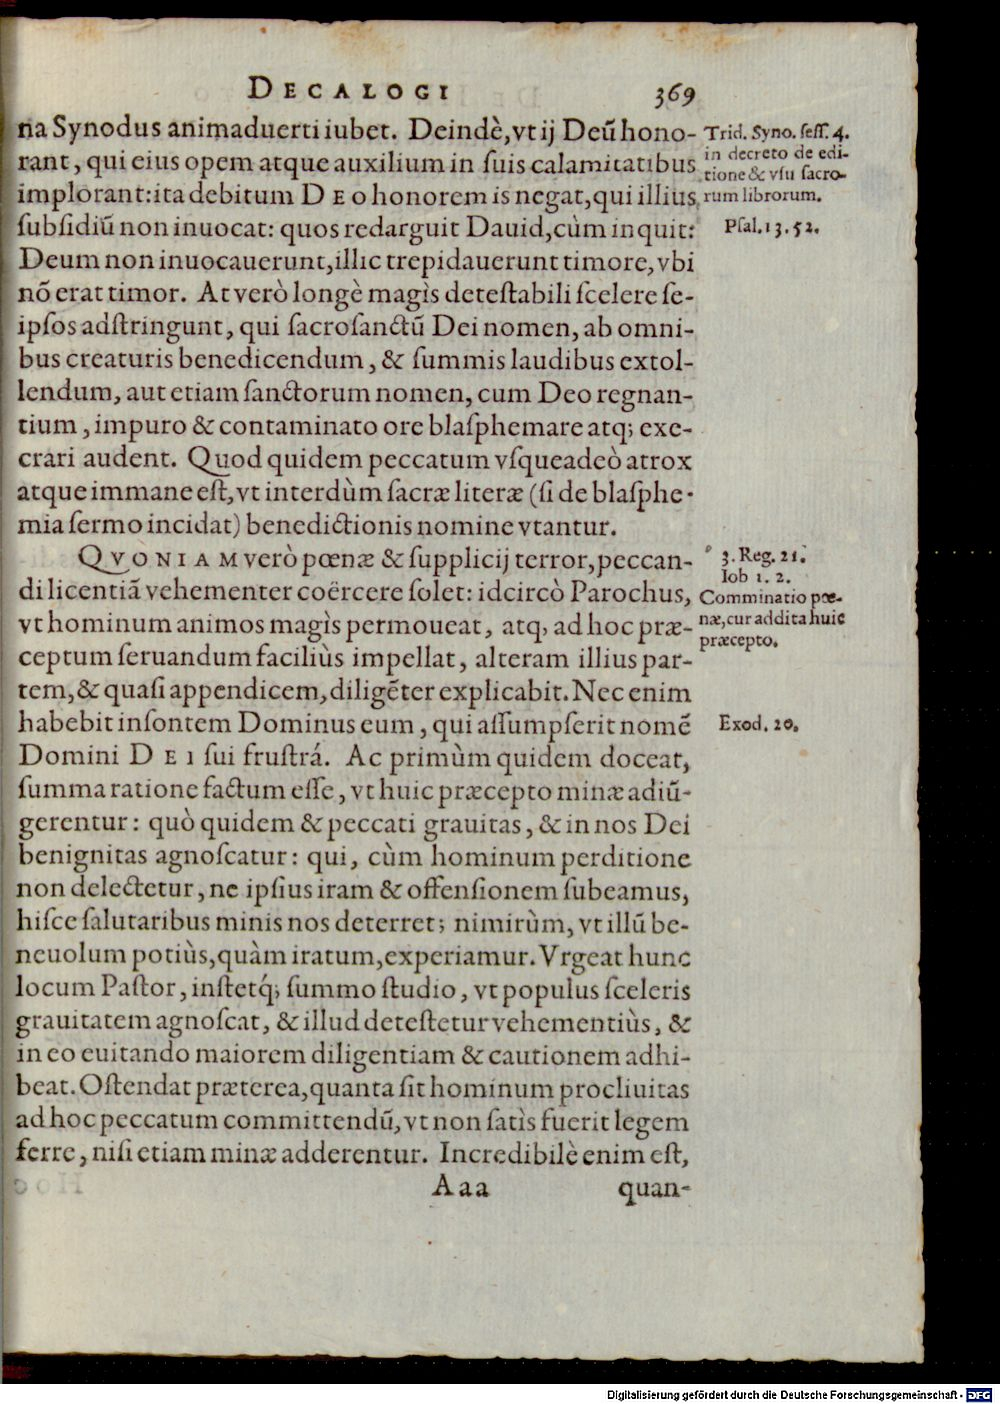 DECALOGI 369
na Synodus animaduerti iubet. Deindè, vt ij Deũ hono-
rant, qui eius opem atque auxilium in ſuis calamitatibus
implorant: ita debitum DEO honorem is negat, qui illius
ſubſidiũ non inuocat: quos redarguit Dauid, cùm inquit:
Deum non inuocauerunt, illic trepidauerunt timore, vbi
nõ erat timor. At verò longè magìs deteſtabili ſcelere ſe-
ipſos adſtringunt, qui ſacroſanctũ Dei nomen, ab omni-
bus creaturis benedicendum, & ſummis laudibus extol-
lendum, aut etiam ſanctorum nomen, cum Deo regnan-
tium, impuro & contaminato ore blaſphemare atq; exe-
crari audent. Quod quidem peccatum vſqueadeò atrox
atque immane eſt, vt interdùm ſacræ literæ (ſi de blaſphe-
mia ſermo incidat) benedictionis nomine vtantur.
QVONIAM verò pœnæ & ſupplicij terror, peccan-
di licentiã vehementer coërcere ſolet: idcircò Parochus,
vt hominum animos magìs permoueat, atq, ad hoc præ-
ceptum ſeruandum faciliùs impellat, alteram illius par-
tem, & quaſi appendicem, diligẽter explicabit. Nec enim
habebit inſontem Dominus eum, qui aſſumpſerit nomẽ
Domini DEI ſui fruſtrá. Ac primùm quidem doceat,
ſumma ratione factum eſſe, vt huic præcepto minæ adiũ-
gerentur: quò quidem & peccati grauitas, & in nos Dei
benignitas agnoſcatur: qui, cùm hominum perditione
non delectetur, ne ipſius iram & offenſionem ſubeamus,
hiſce ſalutaribus minis nos deterret; nimirùm, vt illũ be-
neuolum potiùs, quàm iratum, experiamur. Vrgeat hunc
locum Paſtor, inſtetq́; ſummo ſtudio, vt populus ſceleris
grauitatem agnoſcat, & illud deteſtetur vehementiùs, &
in eo euitando maiorem diligentiam & cautionem adhi-
beat. Oſtendat præterea, quanta ſit hominum procliuitas
ad hoc peccatum committendũ, vt non ſatìs fuerit legem
ferre, niſi etiam minæ adderentur. Incredibilè enim eſt,
Aaa quan-
Trid. Syno. ſeſſ. 4.
in decreto de edi-
tione & vſu ſacro-
rum librorum.
Pſal. 13. 52.
3. Reg. 21.
Iob 1. 2.
Comminatio pœ-
næ, cur addita huic
præcepto.
Exod. 20.
Digitalisierung gefördert durch die Deutsche Forschungsgemeinschaft - DFG